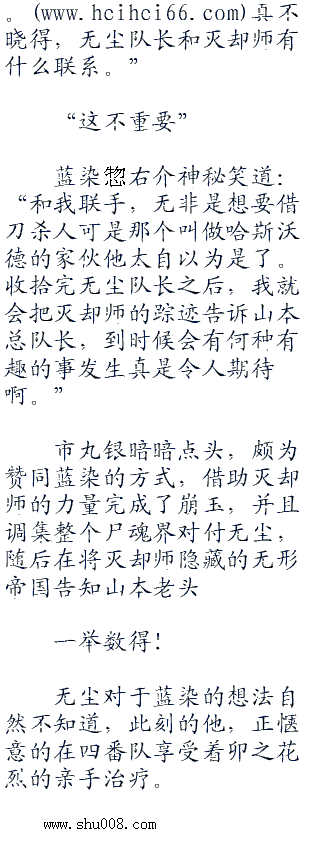 。(www.hcihci66.com)真不
晓得，无尘队长和灭却师有
什么联系。”
“这不重要”
蓝染惣右介神秘笑道：
“和我联手，无非是想要借
刀杀人可是那个叫做哈斯沃
德的家伙他太自以为是了。
收拾完无尘队长之后，我就
会把灭却师的踪迹告诉山本
总队长，到时候会有何种有
趣的事发生真是令人期待
啊。”
市丸银暗暗点头，颇为
赞同蓝染的方式，借助灭却
师的力量完成了崩玉，并且
调集整个尸魂界对付无尘，
随后在将灭却师隐藏的无形
帝国告知山本老头
一举数得！
无尘对于蓝染的想法自
然不知道，此刻的他，正惬
意的在四番队享受着卯之花
烈的亲手治疗。
www.shu008.com